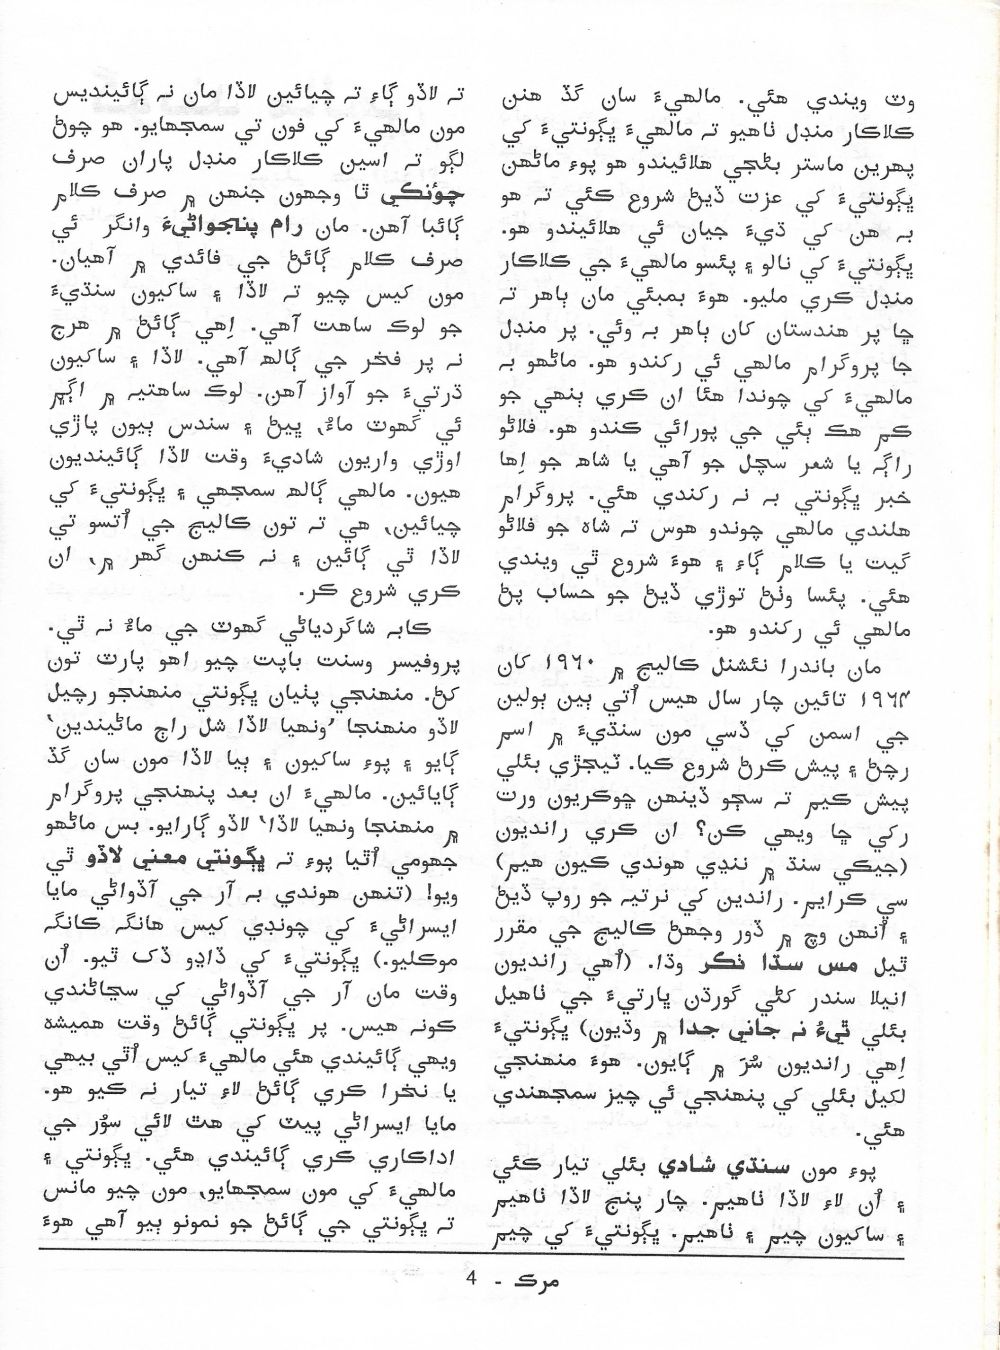 وٽ ويندي هئي. مالهيءَ سان گڏ هنن
ڪلاڪار منڊل ٺاهيو تہ مالهيءَ ڀڳونتيءَ کي
پهرين ماستر بڻجي هلائيندو هو پوءِ ماڻهن
ڀڳونتيءَ کي عزت ڏيڻ شروع ڪئي تہ هو
بہ هن کي ڌيءَ جيان ئي هلائيندو هو.
ڀڳونتيءَ کي نالو ۽ پئسو مالهيءَ جي ڪلاڪار
منڊل ڪري مليو. هوءَ بمبئي مان ٻاهر تہ
ڇا پر هندستان کان ٻاهر بہ وئي. پر منڊل
جا پروگرام مالهي ئي رکندو هو. ماڻهو بہ
مالهيءَ کي چوندا هئا ان ڪري ٻنهي جو
ڪم هڪ ٻئي جي پورائي ڪندو هو. فلاڻو
راڳہ يا شعر سچل جو آهي يا شاهہ جو اِها
خبر ڀڳونتي بہ نہ رکندي هئي. پروگرام
هلندي مالهي چوندو هوس تہ شاہ جو فلاڻو
گيت يا ڪلام ڳاءِ ۽ هوءَ شروع ٿي ويندي
هئي. پئسا وٺڻ توڙي ڏيڻ جو حساب پڻ
مالهي ئي رکندو هو.
مان باندرا نئشنل ڪاليج ۾ ١٩٦٠ کان
١٩٦٤ تائين چار سال هيس اُتي ٻين ٻولين
جي اسمن کي ڏسي مون سنڌيءَ ۾ اسم
رچڻ ۽ پيش ڪرڻ شروع ڪيا. ٽيجڙي بئلي
پيش ڪيم تہ سڄو ڏينهن ڇوڪريون ورت
رکي ڇا ويهي ڪن؟ ان ڪري رانديون
(جيڪي سنڌ ۾ ننڍي هوندي ڪيون هيم)
سي ڪرايم. راندين کي نرتيہ جو روپ ڏيڻ
۽ اُنهن وچ ۾ ڏور وجهڻ ڪاليج جي مقرر
ٿيل مس سڌا ٺڪر وڌا. (اُهي رانديون
انيلا سندر کڻي گورڌن ڀارتيءَ جي ٺاهيل
بئلي ٿيءُ نہ جاني جدا ۾ وڌيون) ڀڳونتيءَ
اِهي رانديون سُرَ ۾ ڳايون. هوءَ منهنجي
لکيل بئلي کي پنهنجي ئي چيز سمجهندي
هئي.
پوءِ مون سنڌي شادي بئلي تيار ڪئي
۽ اُن لاءِ لاڏا ٺاهيم. چار پنج لاڏا ٺاهيم
۽ ساکيون چيم ۽ ٺاهيم. ڀڳونتيءَ کي چيم
تہ لاڏو ڳاءِ تہ چيائين لاڏا مان نہ ڳائينديس
مون مالهيءَ کي فون تي سمجهايو. هو چوڻ
لڳو تہ اسين ڪلاڪار منڊل پاران صرف
چوُنڪي ٿا وجهون جنهن ۾ صرف ڪلام
ڳائبا آهن. مان رام پنجواڻيءَ وانگر ئي
صرف ڪلام ڳائڻ جي فائدي ۾ آهيان.
مون کيس چيو تہ لاڏا ۽ ساکيون سنڌيءَ
جو لوڪ ساهت آهي. اِهي ڳائڻ ۾ هرج
نہ پر فخر جي ڳالهہ آهي. لاڏا ۽ ساکيون
ڌرتيءَ جو آواز آهن. لوڪ ساهتيہ ۾ اڳي
ئي گهوٽ ماءُ، ڀيڻ ۽ سندس ٻيون پاڙي
اوڙي واريون شاديءَ وقت لاڏا ڳائينديون
هيون. مالهي ڳالهہ سمجهي ۽ ڀڳونتيءَ کي
چيائين، هي تہ تون ڪاليج جي اُتسو تي
لاڏا ٿي ڳائين ۽ نہ ڪنهن گهر ۾، ان
ڪري شروع ڪر.
ڪابہ شاگردياڻي گهوٽ جي ماءُ نہ ٿي.
پروفيسر وسنت باپت چيو اهو پارٽ تون
ڪڻ. منهنجي پٺيان ڀڳونتي منهنجو رچيل
لاڏو منهنجا 'ونهيا لاڏا شل راڄ ماڻيندين'
ڳايو ۽ پوءِ ساکيون ۽ ٻيا لاڏا مون سان گڏ
ڳايائين. مالهيءَ ان بعد پنهنجي پروگرام
۾ منهنجا ونهيا لاڏا' لاڏو ڳارايو. بس ماڻهو
جهومي اُٿيا پوءِ تہ ڀڳونتي معني لاڏو ٿي
ويو! (تنهن هوندي بہ آر جي آڏواڻي مايا
ايسراڻيءَ کي چونڊي کيس هانگہ ڪانگہ
موڪليو.) ڀڳونتيءَ کي ڏاڍو ڏک ٿيو. اُن
وقت مان آر جي آڏواڻي کي سڃاڻندي
ڪونہ هيس. پر ڀڳونتي ڳائڻ وقت هميشہ
ويهي ڳائيندي هئي مالهيءَ کيس اُٿي بيهي
يا نخرا ڪري ڳائڻ لاءِ تيار نہ ڪيو هو.
مايا ايسراڻي پيٽ کي هٿ لائي سوُر جي
اداڪاري ڪري ڳائيندي هئي. ڀڳونتي ۽
مالهيءَ کي مون سمجهايو، مون چيو مانس
تہ ڀڳونتي جي ڳائڻ جو نمونو ٻيو آهي هوءَ
مرڪ - 4